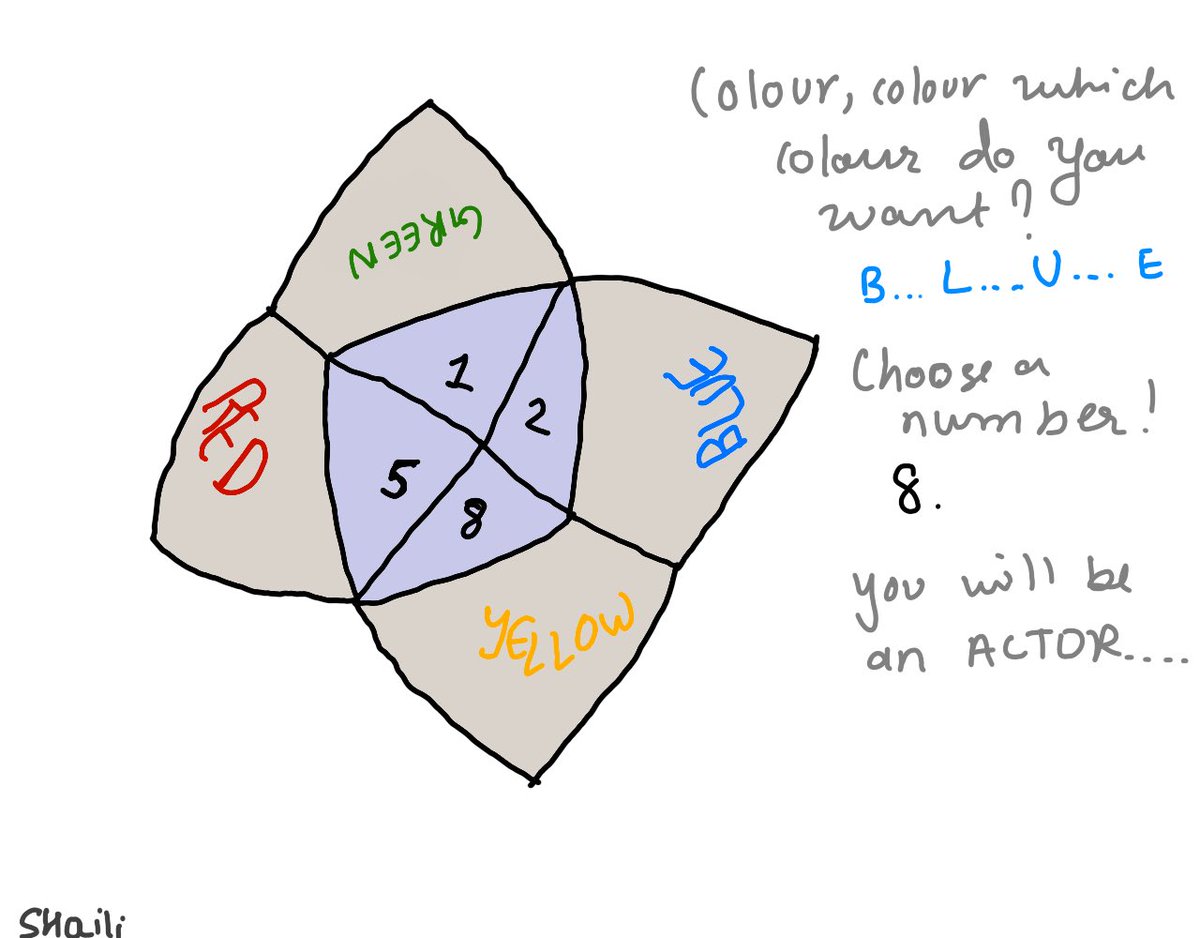 Colour, colour which
colour do you
want?
B... L.... U.... E
Choose a
number!
8.
you will be
an ACTOR....
GREEN
RED
BLUE
YELLOW
1
2
5
8
SHaili